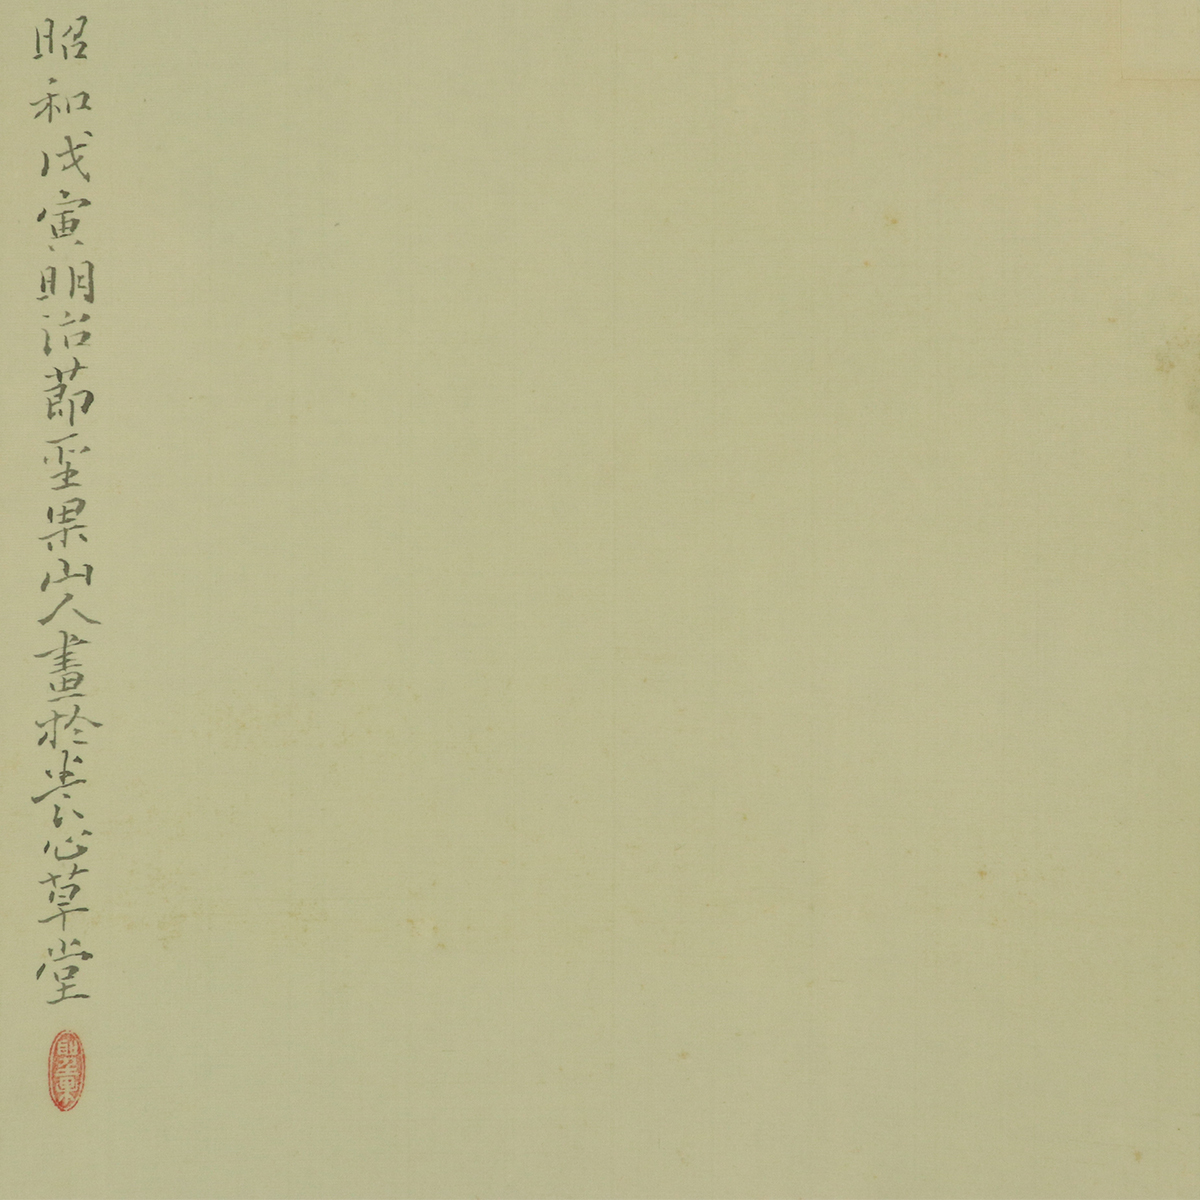 昭和戊寅明治節聖果山人畫於養心草堂